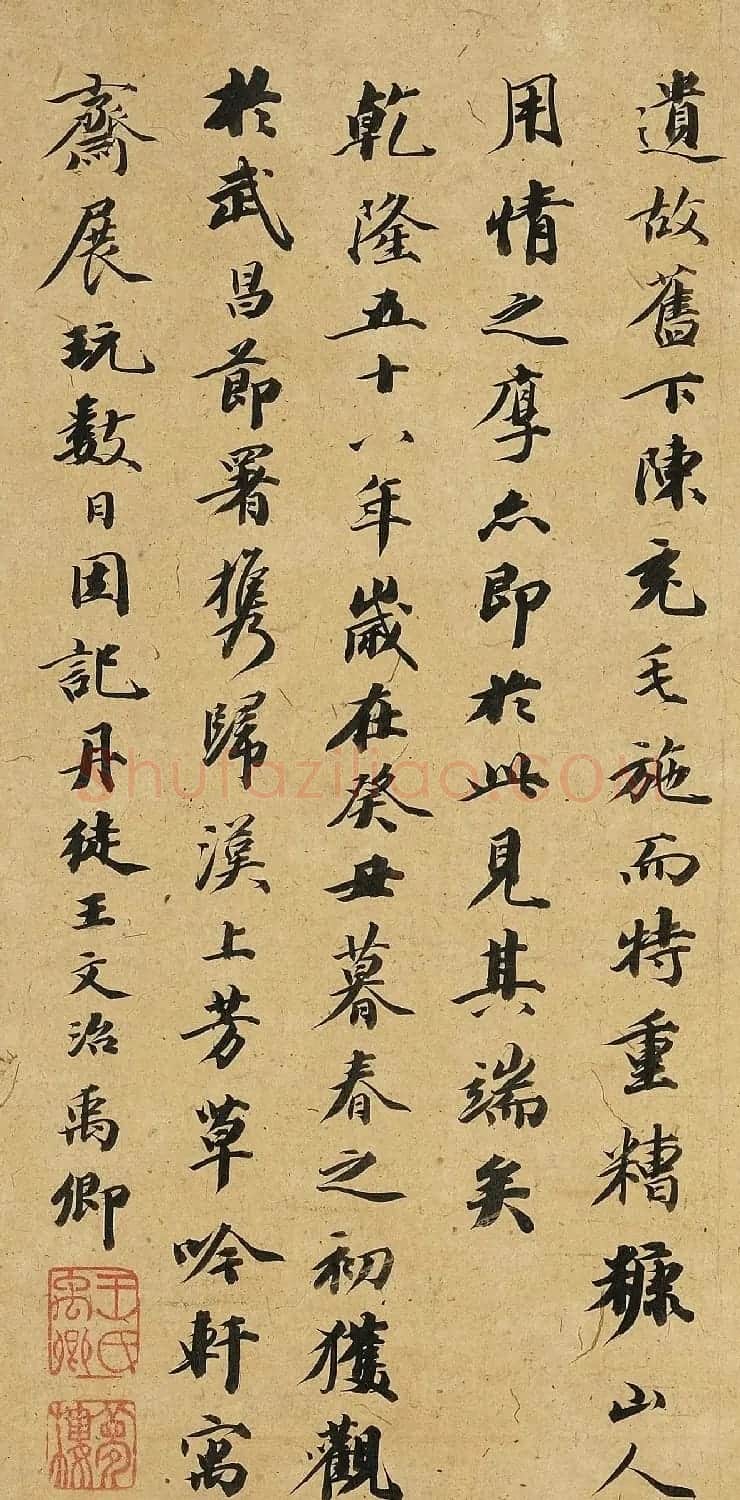 遺故舊下陳充毛施而特重糟糠山人
用情之厚亦即於此見其端矣
乾隆五十八年歲在癸丑暮春之初獲觀
於武昌節署攜歸漢上芳草吟軒寓
齋展玩數日因記丹徒王文治禹卿
王氏禹卿
夢樓
shufaziliao.com